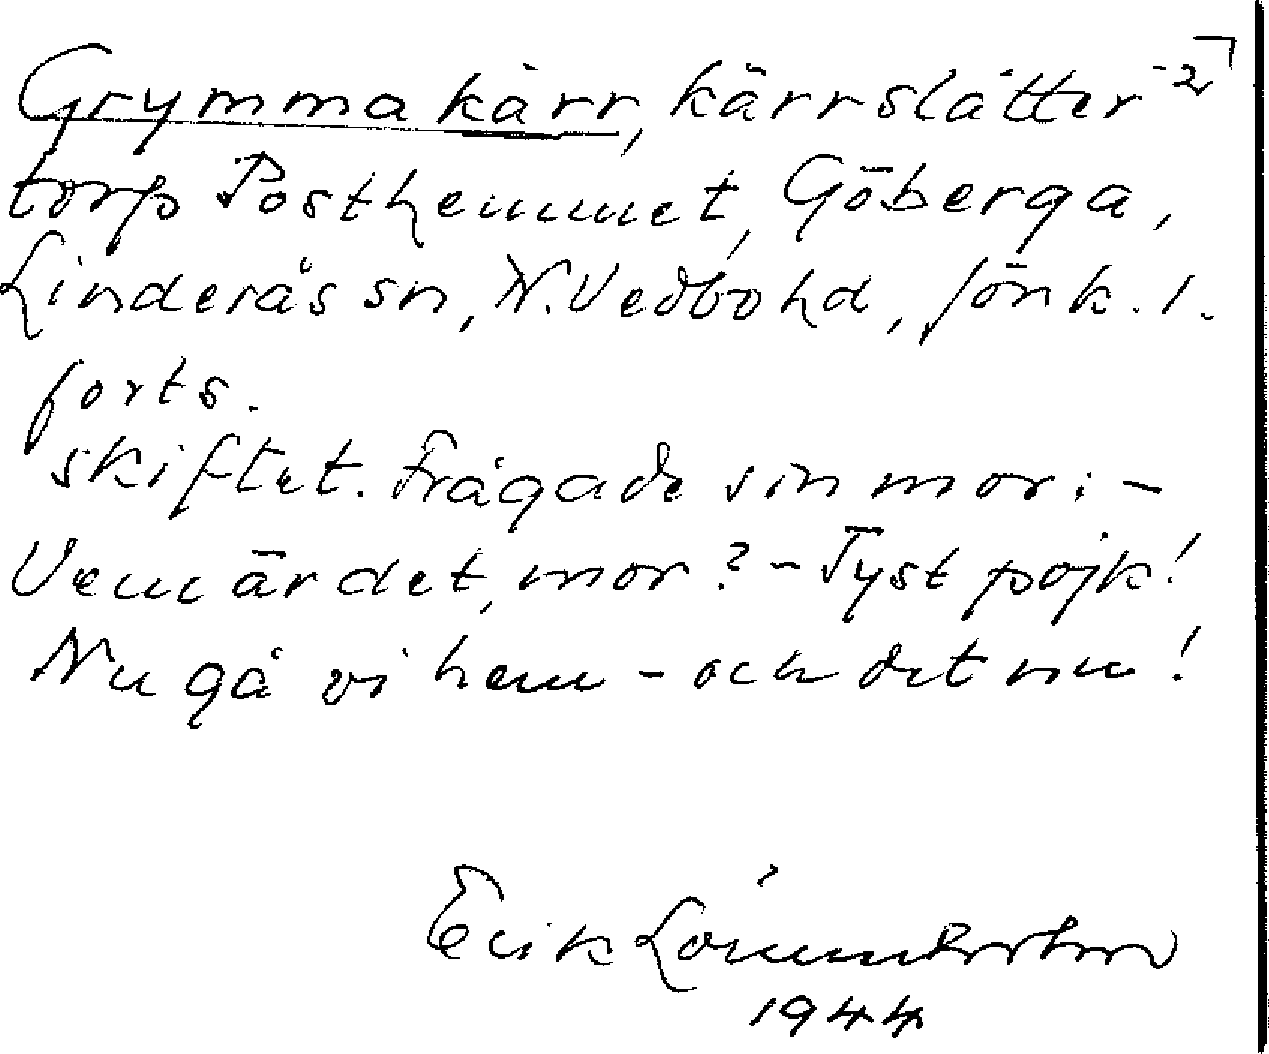 Grymma kärr, kärrslåtter -2
torp Posthemmet, Göberga,
Linderås sn, N. Vedbo hd, Jönk. l.
forts.
skiftet. Frågade sin mor: -
Vem är det, mor? - Tyst pojk!
Nu gå vi hem - och det nu!
Erik
1944